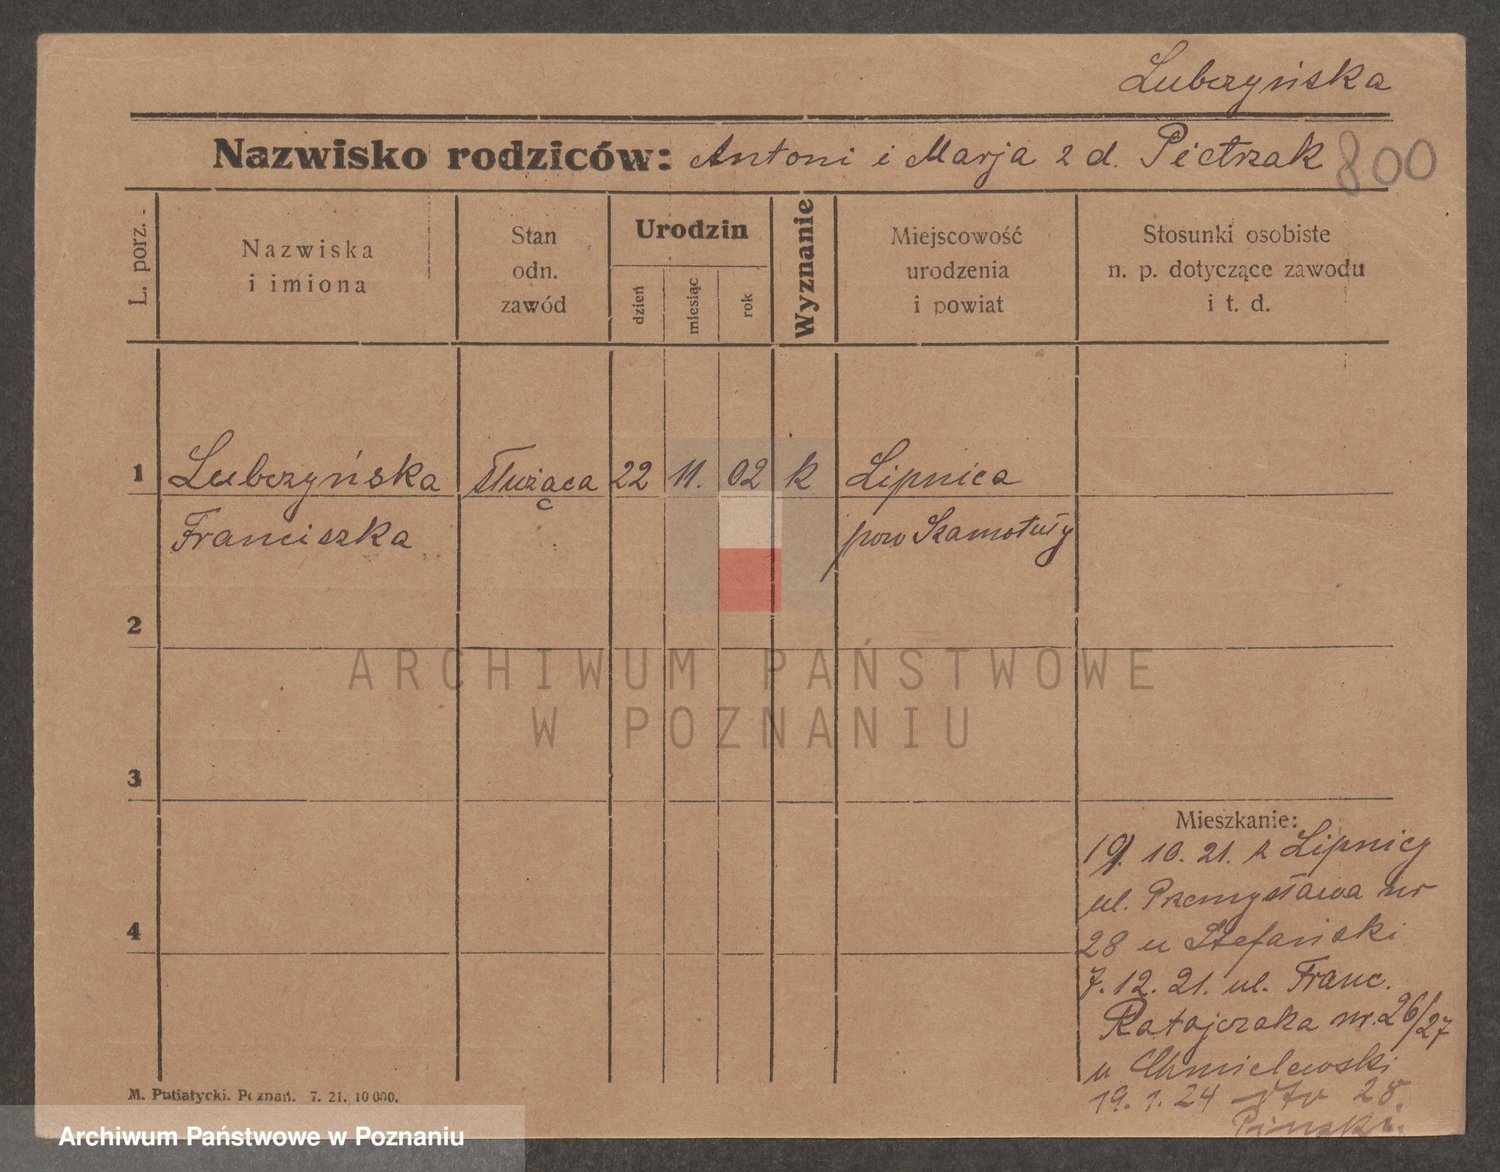 Lubczyńska
Nazwisko rodziców: Antoni i Marja z d. Pietrzak 800
L. porz.
Nazwiska
i imiona
Stan
odn.
zawód
Urodzin
dzień
miesiąc
rok
Wyznanie
Miejscowość
urodzenia
i powiat
Stosunki osobiste
n. p. dotyczące zawodu
i t. d.
1 Lubczyńska służąca 22 11. 02 k Lipnica
Franciszka pow Szamotuły
2
ARCHIWUM PAŃSTWOWE
W POZNANIU
3
Mieszkanie:
19. 10. 21. z Lipnicy
ul. Przemysława nr
28 u Stefański
4
7. 12. 21. ul. Franc.
Ratajczaka nr. 26/27
u Chmielewski
19. 1. 24 28.
Pinski.
M. Putiatycki. Poznań. 7. 21. 10 000.
Archiwum Państwowe w Poznaniu